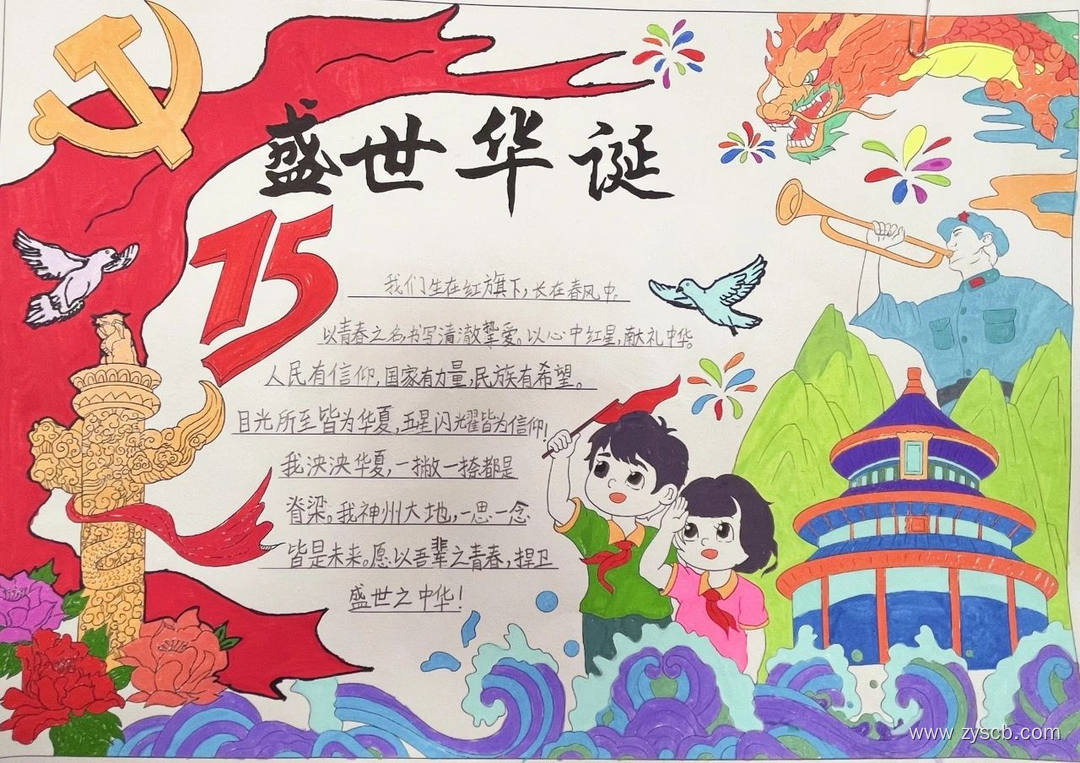 盛世华诞
75
我们生在红旗下,长在春风中。
以青春之名书写清澈挚爱。以心中红星,献礼中华。
人民有信仰,国家有力量,民族有希望。
目光所至皆为华夏,五星闪耀皆为信仰!
我泱泱华夏,一撇一捺都是
脊梁。我神州大地,一思一念
皆是未来。愿以吾辈之青春,捍卫
盛世之中华!
www.zyscb.com